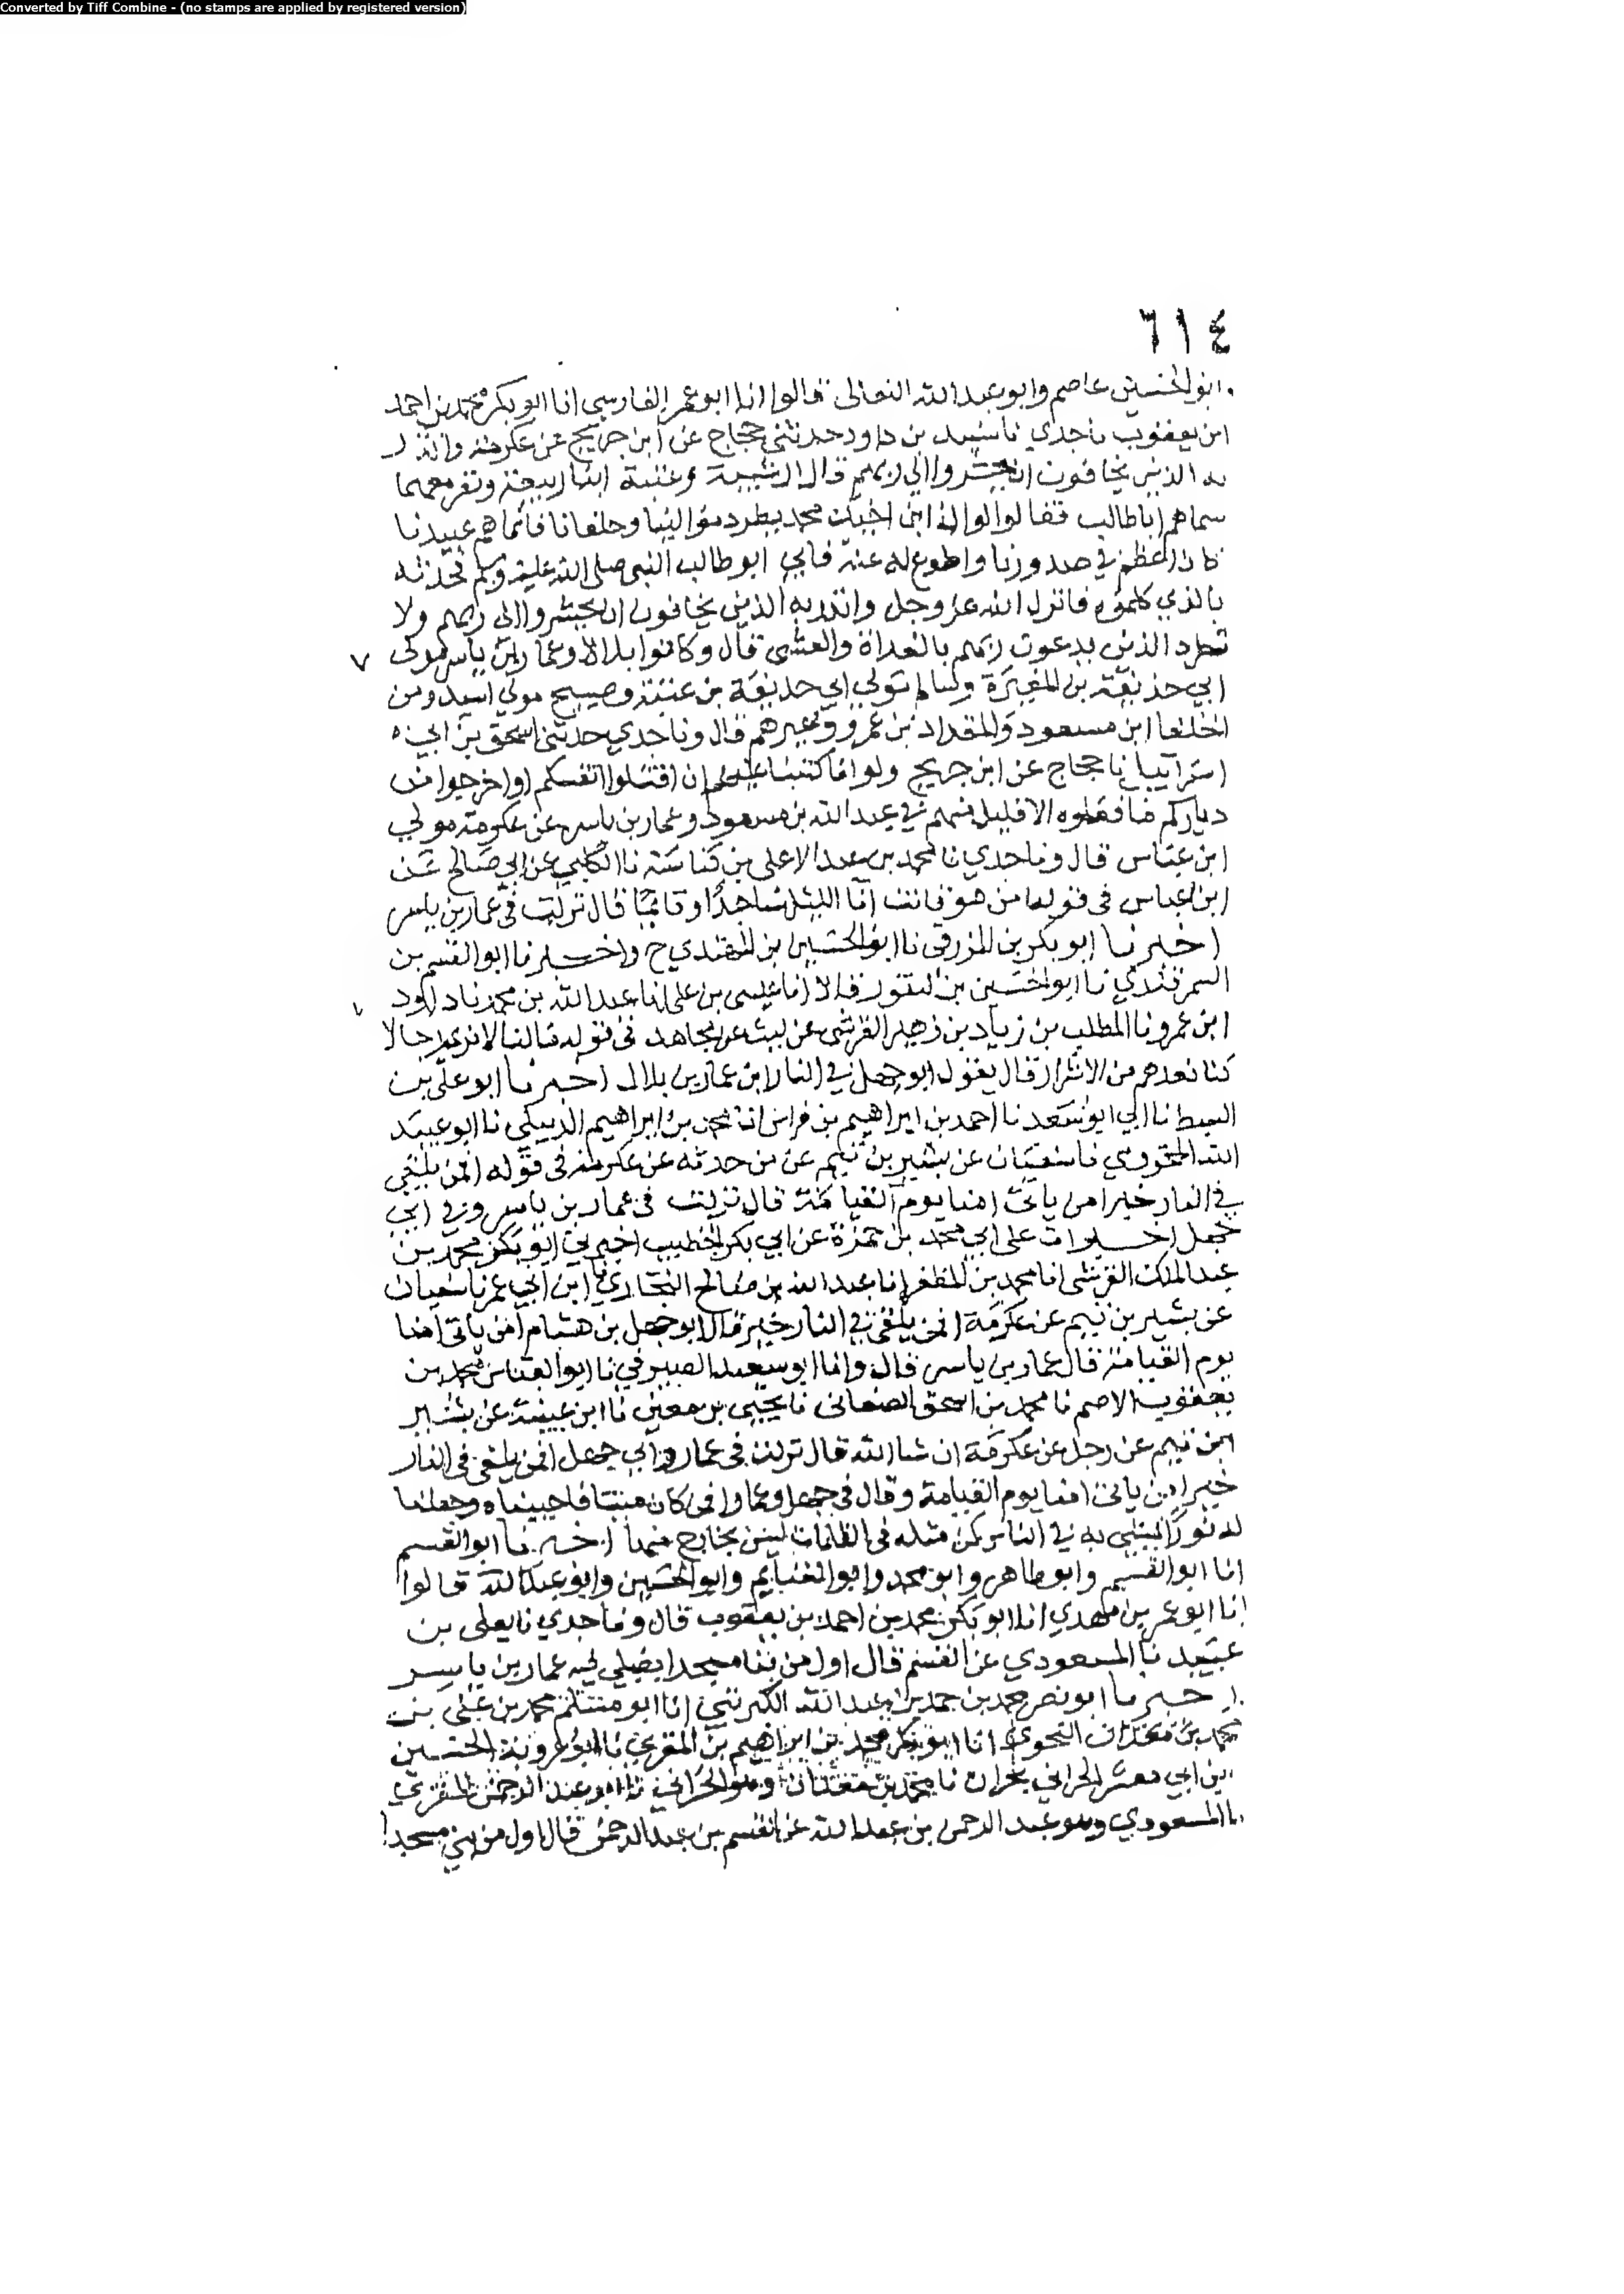 Converted by Tiff Combine - (no stamps are applied by registered version)
٦١٤
وابو الحسين عاصم وابو عبد الله النعالى قالوا انا ابو عمر الفارسي انا ابو بكر محمد بن احمد
ابن يعقوب نا جدي نا سنيد بن داود حدثني حجاج عن ابن جريج عن عكرمة وانذر
به الذين يخافون ان يحشروا الي ربهم قال شيبة وعتبة ابنا ربيعة ونفر معهما
سماهم ابا طالب فقالوا لو ان ابن اخيك محمد يطرد موالينا وحلفانا فانما هم عبيدنا
كان اعظم في صدورنا واطوع له عندنا فاتي ابو طالب النبي صلى الله عليه وسلم فحدثه
بالذي كلموه فانزل الله عز وجل وانذر به الذين يخافون ان يحشروا الى ربهم ولا
تطرد الذين يدعون ربهم بالغداة والعشى قال وكانوا بلالا وعمار بن ياسر مولى
ابي حذيفة بن المغيرة وسالم مولي ابي حذيفة بن عتبة وصبيح مولي اسيد ومن
الحلفا ابن مسعود والمقداد بن عمرو وغيرهم قال ونا جدي حدثنى اسحق بن ابي
اسرائيل نا حجاج عن ابن جريج ولو انا كتبنا عليهم ان اقتلوا انفسكم او اخرجوا من
دياركم ما فعلوه الا قليل منهم في عبد الله بن مسعود وعمار بن ياسر عن عكرمة مولي
ابن عباس قال ونا جدي نا محمد بن عبد الاعلى بن كناسة نا الكلبي عن ابي صالح عن
ابن عباس في قوله امن هو قانت آنا الليل ساجدا وقائما قال نزلت في عمار بن ياسر
اخبرنا ابو بكر بن المزرفي نا ابو الحسين بن المهتدي ح واخبرنا ابو القسم بن
السمرقندي نا ابو الحسين بن النقور قالا انا عيسى بن علي انا عبد الله بن محمد نا داود
ابن عمرو نا المطلب بن زياد بن زهير القرشى عن ليث عن مجاهد في قوله ما لنا لا نرى رجالا
كنا نعدهم من الاشرار قال يقول ابو جهل في النار اين عمار اين بلال اخبرنا ابو علي بن
السبط نا ابي ابو سعد نا احمد بن ابراهيم بن فراس انا محمد بن ابراهيم الديبلي نا ابو عبيد
الله المخزومي نا سفيان عن بشير بن تيم عن من حدثه عن عكرمة في قوله افمن يلقى
في النار خير امن ياتي امنا يوم القيامة قال نزلت في عمار بن ياسر وفي ابي
جهل اخـــبرت على ابي محمد بن حمزة عن ابي بكر الخطيب اخبرني ابو بكر محمد بن
عبد الملك القرشى انا محمد بن المظفر انا عبد الله بن صالح البخاري نا ابن ابي عمر نا سفيان
عن بشير بن تيم عن عكرمة افمن يلقى في النار خير قال ابو جهل بن هشام امن ياتي امنا
يوم القيامة قال عمار بن ياسر قال وانا ابو سعيد الصيرفي نا ابو العباس محمد بن
يعقوب الاصم نا محمد بن اسحق الصغانى نا يحيى بن معين نا ابن عيينة عن بشير
ابن تيم عن رجل عن عكرمة ان شا الله قال نزلت في عمار وابي جهل افمن يلقى في النار
خير امن ياتى امنا يوم القيامة وقال في جهل وعمار اومن كان ميتا فاحييناه وجعلنا
له نورا يمشي به في الناس كمن مثله في الظلمات ليس بخارج منها اخبرنا ابو القسم
انا ابو القسم وابو طاهر وابو محمد وابو الغنايم وابو الحسين وابو عبد الله قالوا
انا ابو عمر بن مهدي انا ابو بكر محمد بن احمد بن يعقوب قال ونا جدي نا يعلى بن
عبيد نا المسعودي عن القسم قال اول من بنا مسجدا يصلي فيه عمار بن ياسر
اخبرنا ابو نصر محمد بن حمد بن عبد الله الكبريتي انا ابو مسلم محمد بن علي بن
محمد بن مهران النحوي انا ابو بكر محمد بن ابراهيم بن المقري نا ابو عروبة الحسين
ابن ابي معشر الحراني بحران نا محمد بن معدان وهو الحراني نا ابو عبد الرحمن المقري
نا المسعودي وهو عبد الرحمن بن عبد الله عن القسم بن عبد الرحمن قال اول من بنى مسجدا